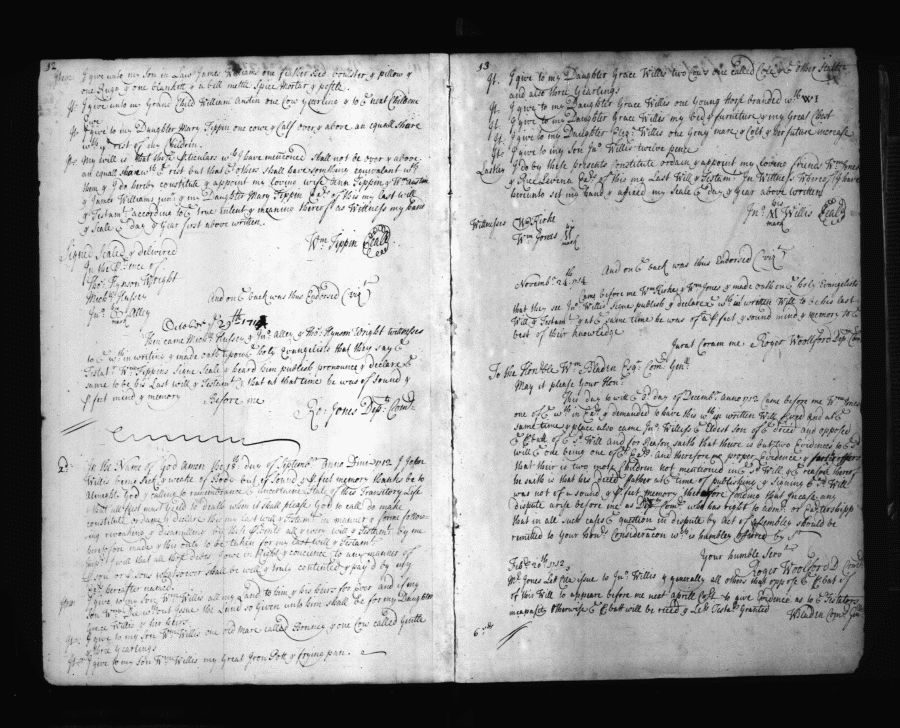 52
Item I give unto my Son in Law James Williams one feather bed boulster & pillow &
one Rugg & one blankett & a bell mettle Spice Mortar & pestle.
It. I give unto my Grand Child William Austin one Cow Yearling &
Ewe
It. I give to my Daughter Mary Tippin one cowe & Calf over & above an equall Share
wth ye rest of my Children.
It. My will is that the pticulars wch I have mencioned shall not be over & above
an equall share wth ye rest but that ye others shall have something equivalent wth
them & I do hereby constitute & appoint my loving wife Ann Tippin & Wm Austin
& James Williams junr & my Daughter Mary Tippin Exrs of this my last will
& Testamt according to ye true intent & meaning thereof as Wittness my hand
& Seale ye day & Year first above written.
Wm Tippin Seal
Signed Sealed & delivered
In the psence of
Thos Hynson Wright
Michl Hussey
Jno Alley
mark
And on ye back was thus Endorsed (vizt)
October ye 29th
Then came Michl Hussey & Jno Alley & Thos Hynson Wright wittnesses
to ye wthin writing & made oath upon ye holy Evangelists that they saw ye
Testatr Wm Tippin Signe Seale & heard him publish pronounce & declare ye
same to be his Last Will & Testamt & that at that time he was of sound &
pfect mind & memory
Before me
Ro: Jones Depty Comry
In the Name of God Amen the 18th day of Septembr Anno Dmi 1712 I John
Willis being sick & weake of Body but of Sound & pfect memory thanks be to
Almighty God & calling to remembrance ye uncertaine State of this Transitory Life
& that all flesh must yield to death when it shall please God to call do make
constitute ordaine & declare this my last will & Testamt in manner & forme follow-
ing revoaking & disanulling by these psents all & every will & Testamt by me
heretofore made & this only to be taken for my last will & Testamt
Impr I will that all those debts I owe in Right & concience to any manner of
pson or psons whatsoever shall be well & truly contented & paid by my
Exr hereafter named.
Item I give to my Son Wm Willis all my Land to him & his heirs for ever and if my
Son Wm die without issue the Land so given unto him shall be for my Daughter
Grace Willis & her heirs.
It. I give to my Son Wm Willis one old Mare called Bonney & one Cow called Gentle
& three Yearlings
It. I give to my Son Wm Willis my Great Iron Pott & frying pan.
53
It. I give to my Daughter Grace Willis two Cows one called Cole & ye other
and also three Yearlings
It. I give to my Daughter Grace Willis one Young Horse branded wth WI
It. I give to my Daughter Grace Willis my bed & furniture & my Great Chest
It. I give to my Daughter Willis one Gray mare & Colt & her future increase
It. I give to my Son Jno Willis twelve pence
Lastly I do by these presents Constitute ordain & appoint my loving friends Wm Jones
& Exrs of this my Last Will & Testamt In Wittness whereof I have
hereunto set my hand & affixed my Seale ye day & Year above written
his
Jno M Willis Seal
mark
Wittnesses Wm Kirke
Wm Jones
mark
And on ye back was thus Endorsed (vizt)
Novembr 24th 1712
Came before me Wm Kirke & Wm Jones & made oath on ye holy Evangelists
that they see Jno Willis Signe publish & declare ye wthin written Will to be his last
Will & Testamt & at ye same time he was of a pfect & sound mind & memory to ye
best of their knowledge
Jurat Coram me: Roger Woolford Dep Com
To the Honble Wm Bladen Esqr Comry Genll
May it please your Honr
This day ye 3d day of Decembr Anno 1712 Came before me Wm Jones
one of ye wthin Exrs & demanded to have this wthin written Will proved and at ye
same time & place also came Jno Willis ye Eldest son of ye decd and opposed
ye pbatt of ye sd Will and for Reason saith that there is but two Evidences to ye sd
will & one being one of ye Exrs and therefore no proper Evidence &
that their is two more Children not mentioned in ye sd Will & ye reason thereof
he saith is that his decd father at ye time of publishing & Signing ye sd Will
was not of a sound & pfect memory therefore finding that Incase any
dispute arise before me as Depty Comry who has right to Admr or Exrshipp
that in all such cases & question in dispute by Act of Assembly should be
remitted to Your Honrs Consideracon wch is humbly offered by Sr
Your humble Servt
Roger Woolford
Febry 20th 1712
Mr Jones Lett issue to Jno Willis & generally all others that oppose ye pbatt of
of this Will to appeare before me next aprill Court to give Evidence as to ye Testators
incapacity otherwise ye pbatt will be recd & Lettrs Testamty Granted
WBladen Comry Genll